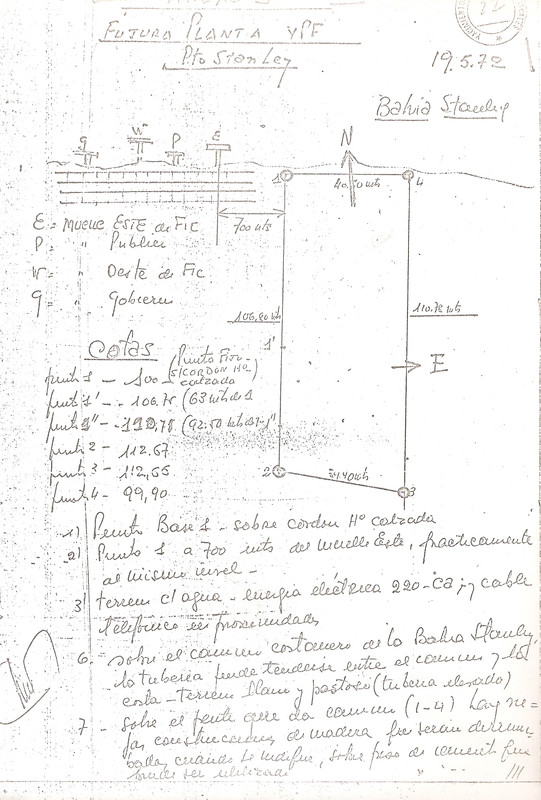 FUTURA PLANTA YPF
Pto Stanley
19.5.72
Bahia Stanley
g W P E
N
1 40.50 mts 4
700 mts
E = Muelle ESTE de FIC
P = " Publico
W = " Oeste de FIC
g = " Gobierno
106,80 mts
110.78 mts
1'
E
Cotas
(Punto Fijo
S/CORDON Hº
calzada)
punto 1 - 100
punto 1' - 106.75 (63 mts de 1
punto 1" - 110,78 (92.50 mts de 1-1"
punto 2 - 112.67
punto 3 - 112,65
punto 4 - 99,90
2
3
1) Punto Base 1 - sobre cordon Hº calzada
2) Punto 1 a 700 mts del muelle Este, practicamente
al mismo nivel -
3) terreno c/ agua - energia eléctrica 220-ca; y cable
telefónico en proximidades
6. sobre el camino costanero de la Bahia Stanley,
la tuberia puede tenderse entre el camino y la
costa - terreno llano y pastoso (tuberia elevada)
7 - sobre el frente que da camino (1-4) hay vie-
jas construcciones de madera que seran derrum-
badas cuando lo indique, sobre piso de cemento que
puede ser utilizado
///